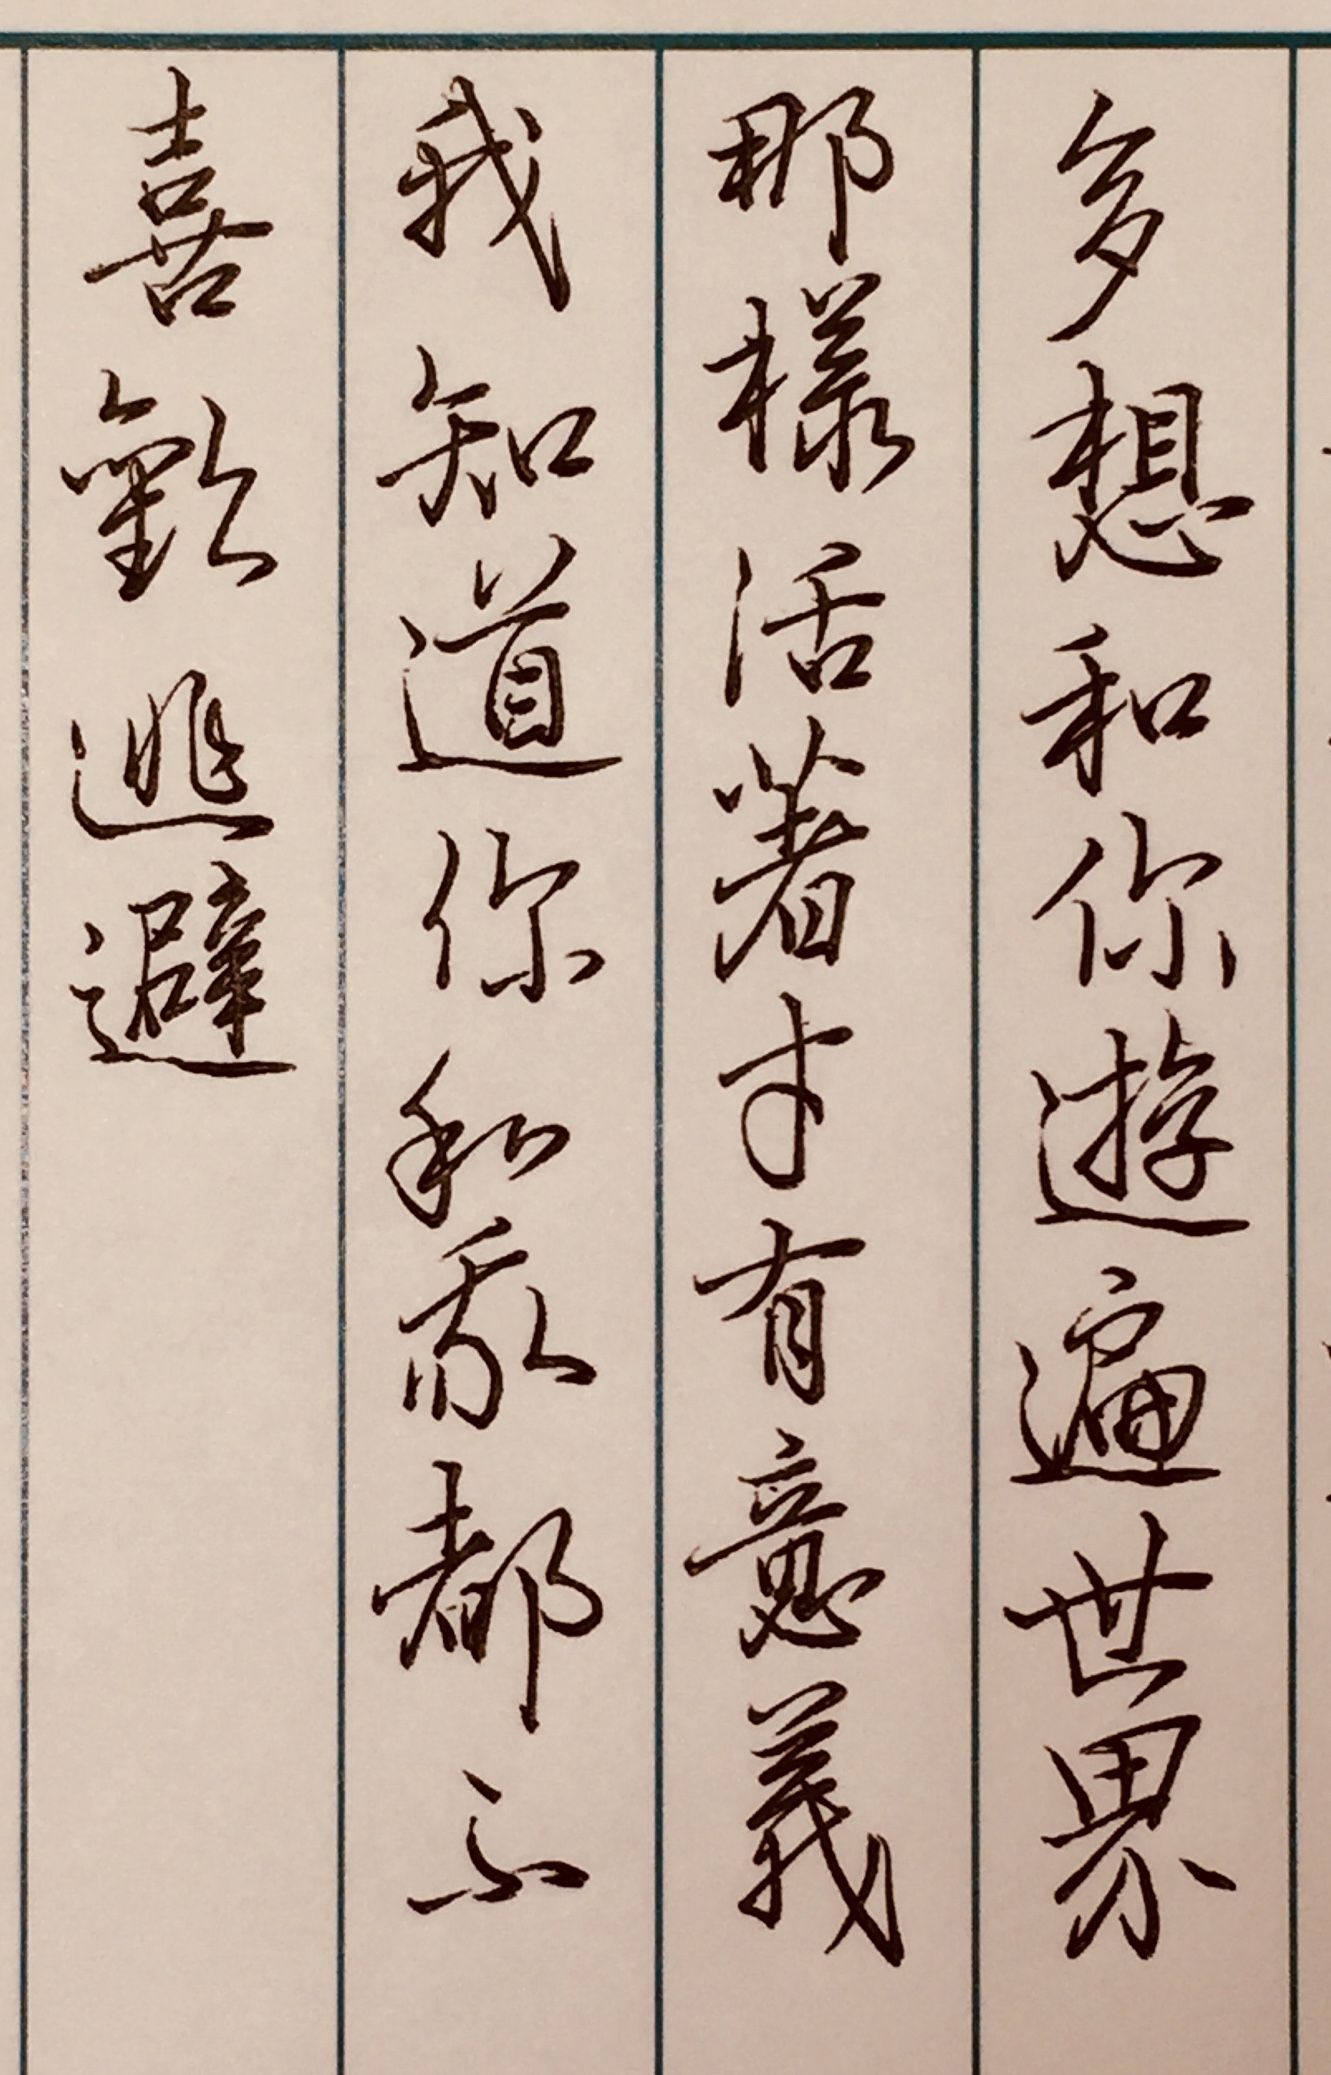 多想和你遊遍世界
那樣活著才有意義
我知道你和我都不
喜歡逃避